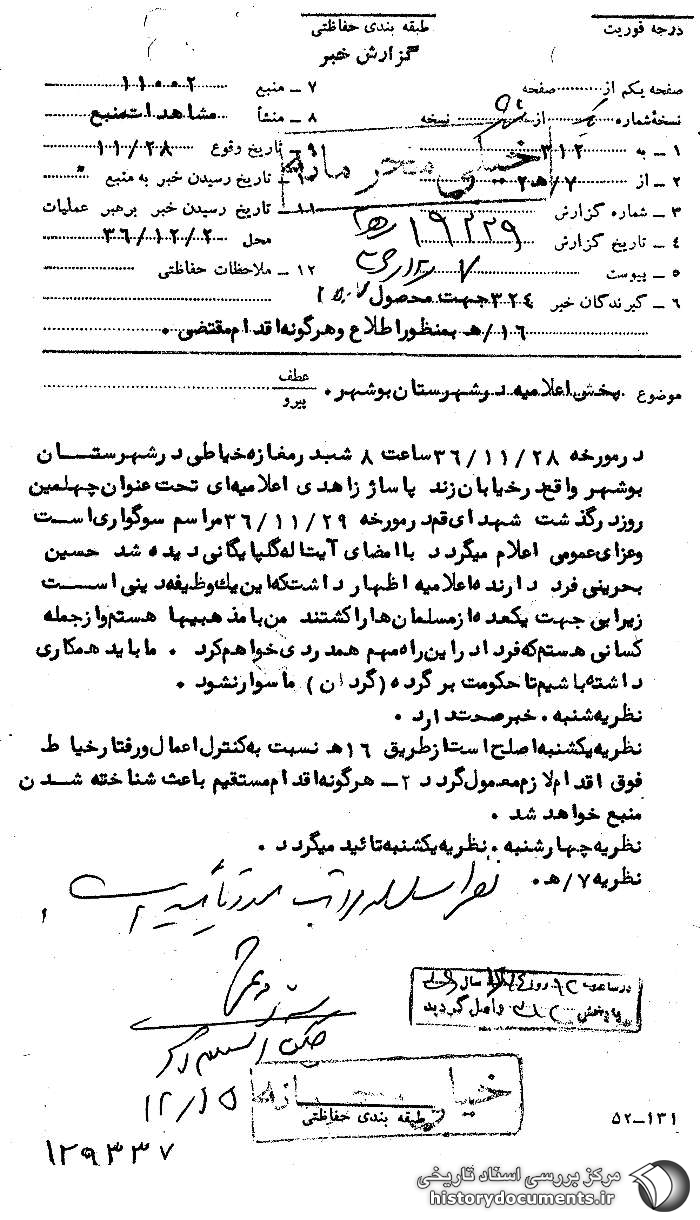 درجه فوریت
طبقه بندی حفاظتی
گزارش خبر
صفحه یکم از صفحه
نسخه شماره از نسخه
۱ – به ۳۱۲
۲ – از ۷/هـ۲
۳ – شماره گزارش ۱۹۲۲۹/هـ
۴ – تاریخ گزارش
۵ – پیوست
۶ – گیرندگان خبر ۳۲۴ جهت محصول
۱۶/هـ بمنظور اطلاع و هرگونه اقدام مقتضی .
۷ – منبع ۱۱۰۰۲
۸ – منشأ مشاهدات منبع
۹ – تاریخ وقوع ۱۱/۲۸
۱۰ – تاریخ رسیدن خبر به منبع
۱۱ – تاریخ رسیدن خبر برهبر عملیات
محل ۳۶/۱۲/۲
۱۲ – ملاحظات حفاظتی
خیلی محرمانه
موضوع پخش اعلامیه در شهرستان بوشهر .
عطف
پیرو
در مورخه ۳۶/۱۱/۲۸ ساعت ۸ شب در مغازه خیاطی در شهرستان
بوشهر واقع در خیابان زند پاساژ زاهدی اعلامیه‌ای تحت عنوان چهلمین
روز درگذشت شهدای قم در مورخه ۳۶/۱۱/۲۹ مراسم سوگواری است
و عزای عمومی اعلام میگردد با امضای آیت‌اله گلپایگانی دیده شد حسین
بحرینی فرد دارنده اعلامیه اظهار داشت که این یك وظیفه دینی است
زیرا بی جهت یکعده از مسلمان‌ها را کشتند من با مذهبیها هستم و از جمله
کسانی هستم که فردا در این راه مهم همدردی خواهم کرد . ما باید همکاری
داشته باشیم تا حکومت بر گرده (گردان) ما سوار نشود .
نظریه شنبه . خبر صحت دارد .
نظریه یکشنبه اصلح است از طریق ۱۶هـ نسبت به کنترل اعمال و رفتار خیاط
فوق اقدام لازم معمول گردد ۲– هرگونه اقدام مستقیم باعث شناخته شدن
منبع خواهد شد .
نظریه چهارشنبه . نظریه یکشنبه تائید میگردد .
نظریه ۷/هـ .
۱۲/۱۵
خیلی محرمانه
طبقه بندی حفاظتی
۱۲۹۳۳۷
۵۲–۱۳۱
مرکز بررسی اسناد تاریخی
historydocuments.ir